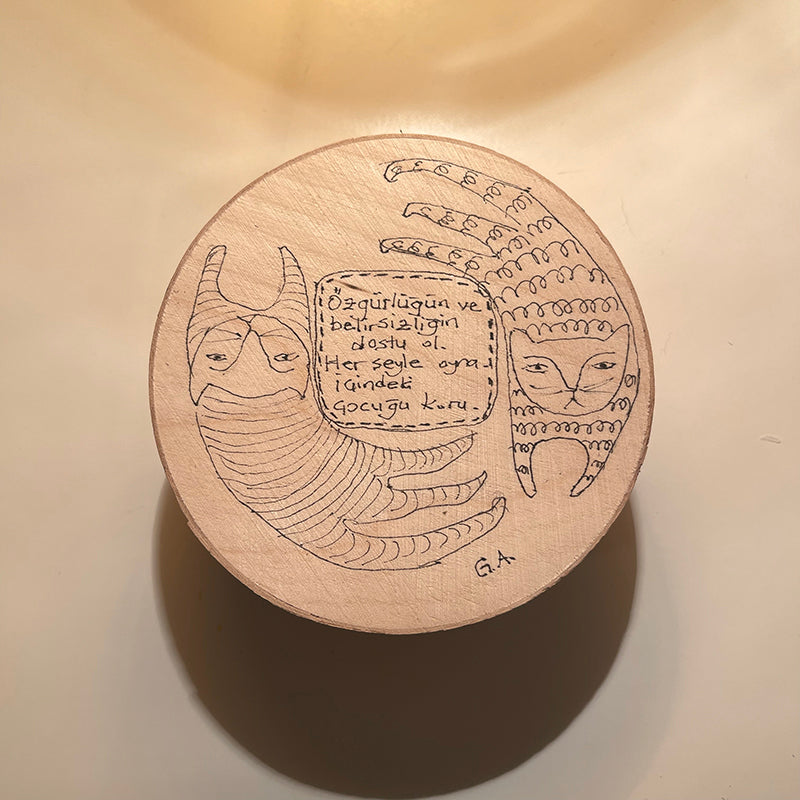 Özgürlüğün ve
belirsizliğin
dostu ol.
Her şeyle oyna
içindeki
çocuğu koru.
G.A.